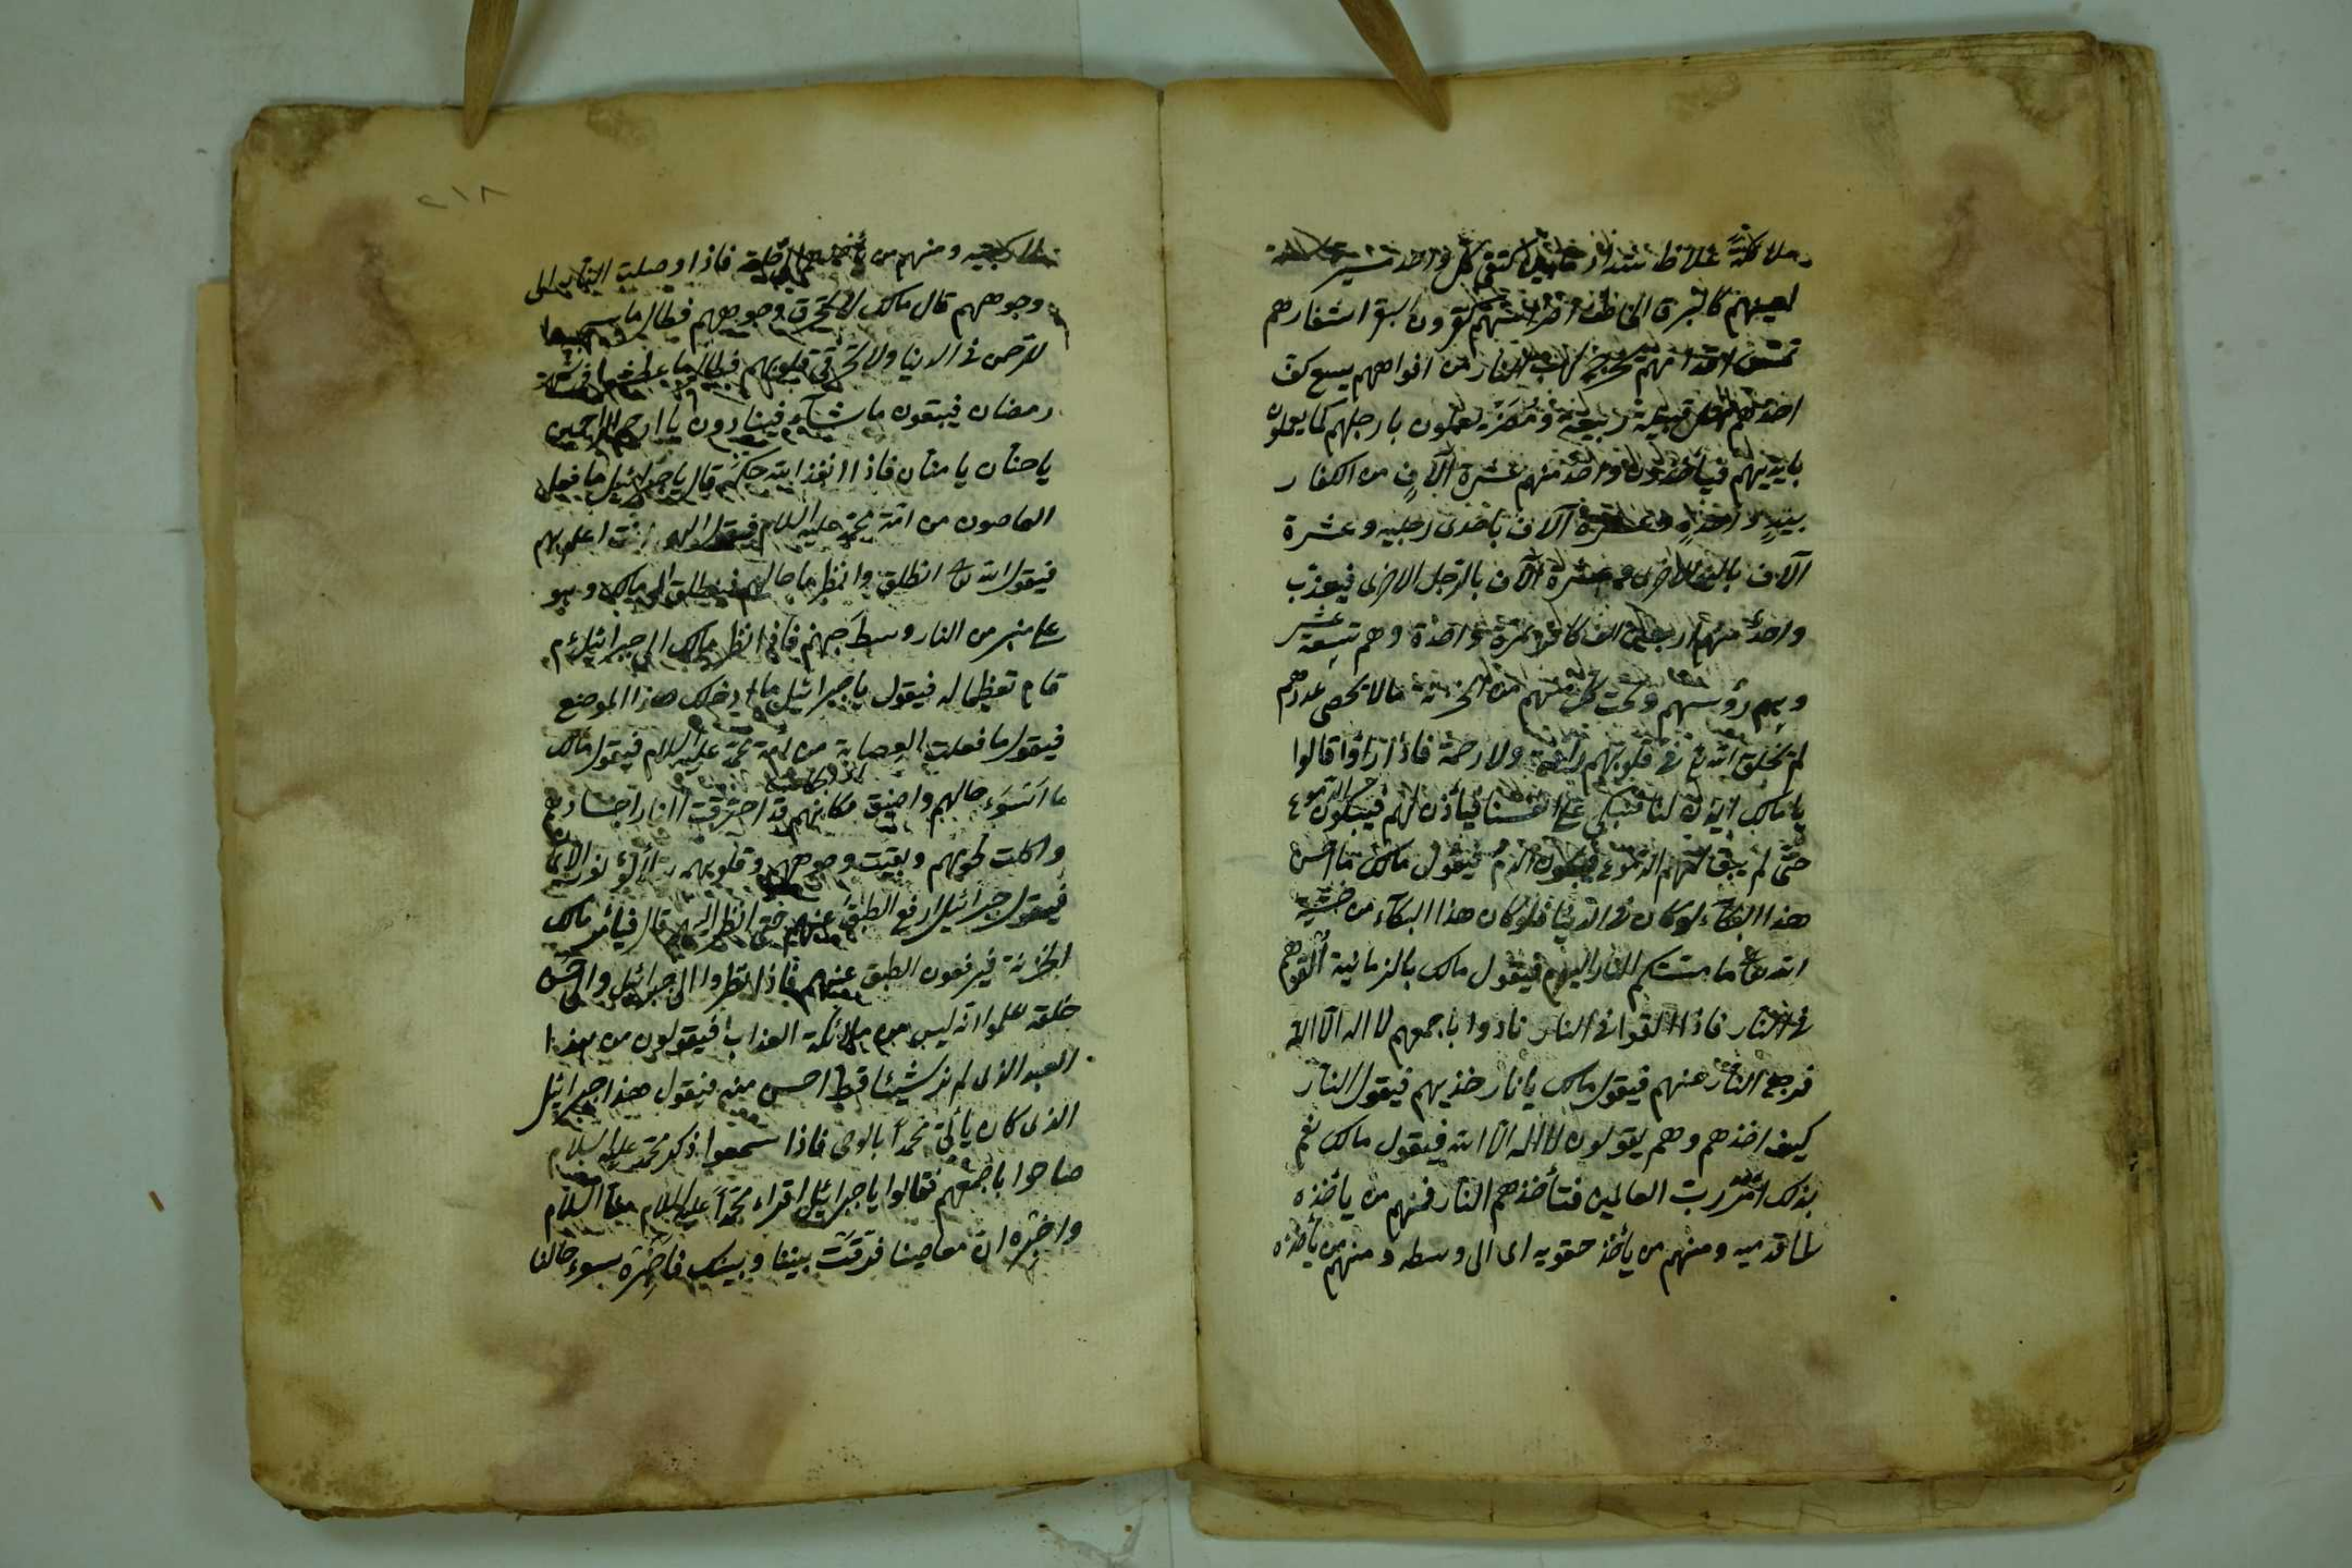 ملائكة غلاظ شداد كتفى كل واحد مسيرة
اعينهم كالبرق الخاطف اسنانهم كقرون البقر اشفارهم
تمس اقدامهم يخرج لهب النار من افواههم يسع كف
احدهم مثل قبيلة ربيعة ومضر يعملون بارجلهم كما يعملون
بايديهم فيأخذون واحد منهم عشرة آلاف من الكفار
بيد واحدة وعشرة آلاف باحدى رجليه وعشرة
آلاف باليد الاخرى وعشرة آلاف بالرجل الاخرى فيعذب
واحد منهم اربعين الف كافر بمرة واحدة وهم تسعة عشر
وهم رؤسهم وتحت كل منهم من الخزنة ما لا يحصى عددهم
لم يخلق الله تع فى قلوبهم رأفة ولا رحمة فاذا راوا قالوا
يا مالك ايذن لنا فنبكى على انفسنا فيأذن لهم فيبكون الدموع
حتى لم يبق لهم الدموع فيبكون الدم فيقول مالك ما احسن
هذا البكاء لو كان فى الدنيا فلو كان هذا البكاء من خشية
الله تعا ما مستكم النار اليوم فيقول مالك بالزبانية القوهم
فى النار فاذا القوا فى النار نادوا باجمعهم لا اله الا الله
فرجع النار عنهم فيقول مالك يا نار خذيهم فيقول النار
كيف اخذهم وهم يقولون لا اله الا الله فيقول مالك نعم
بذلك امر رب العالمين فتأخذهم النار فمنهم من يأخذه
الى قدميه ومنهم من يأخذ حقويه اى الى وسطه ومنهم من يأخذه
ومنهم من حلقه فاذا وصلت النار الى
وجوههم قال مالك لا تحرق وجوههم فطال ما سجدوا
للرحمن فى الدنيا ولا تحرقى قلوبهم فطال ما عطشوا فى شهر
رمضان فيبقون ما شاء فينادون يا ارحم الراحمين
يا حنان يا منان فاذا انفذ الله حكمه قال يا جبرائيل ما فعل
العاصون من امة محمد عليه السلام فيقول الهى انت اعلم بهم
فيقول الله تعا انطلق وانظر ما حالهم فينطلق الى مالك وهو
على منبر من النار وسط جهنم فاذا نظر مالك الى جبرائيل ءم
قام تعظيما له فيقول يا جبرائيل ما ادخلك هذا الموضع
فيقول ما فعلت العصابة من امة محمد عليه السلام فيقول مالك
ما اسوء حالهم واضيق مكانهم قد احترقت النار اجسادهم
واكلت لحومهم وبقيت وجوههم وقلوبهم يتلألؤ نور الايمان
فيقول جبرائيل ارفع الطبق عنهم حتى انظر اليهم قال فيأمر مالك
الخزنة فيرفعون الطبق عنهم فاذا نظروا الى جبرائيل والى حسن
خلقه علموا انه ليس من ملائكة العذاب فيقولون من هذا
العبد الذى لم نر شيئا قط احسن منه فيقول هذا جبرائيل
الذى كان يأتى محمدا بالوحى فاذا سمعوا ذكر محمد عليه السلام
صاحوا باجمعهم فقالوا يا جبرائيل اقراء محمدا عليه السلام منا السلام
واخبره ان معاصينا فرقت بيننا وبينك فاخبره بسوء حالنا